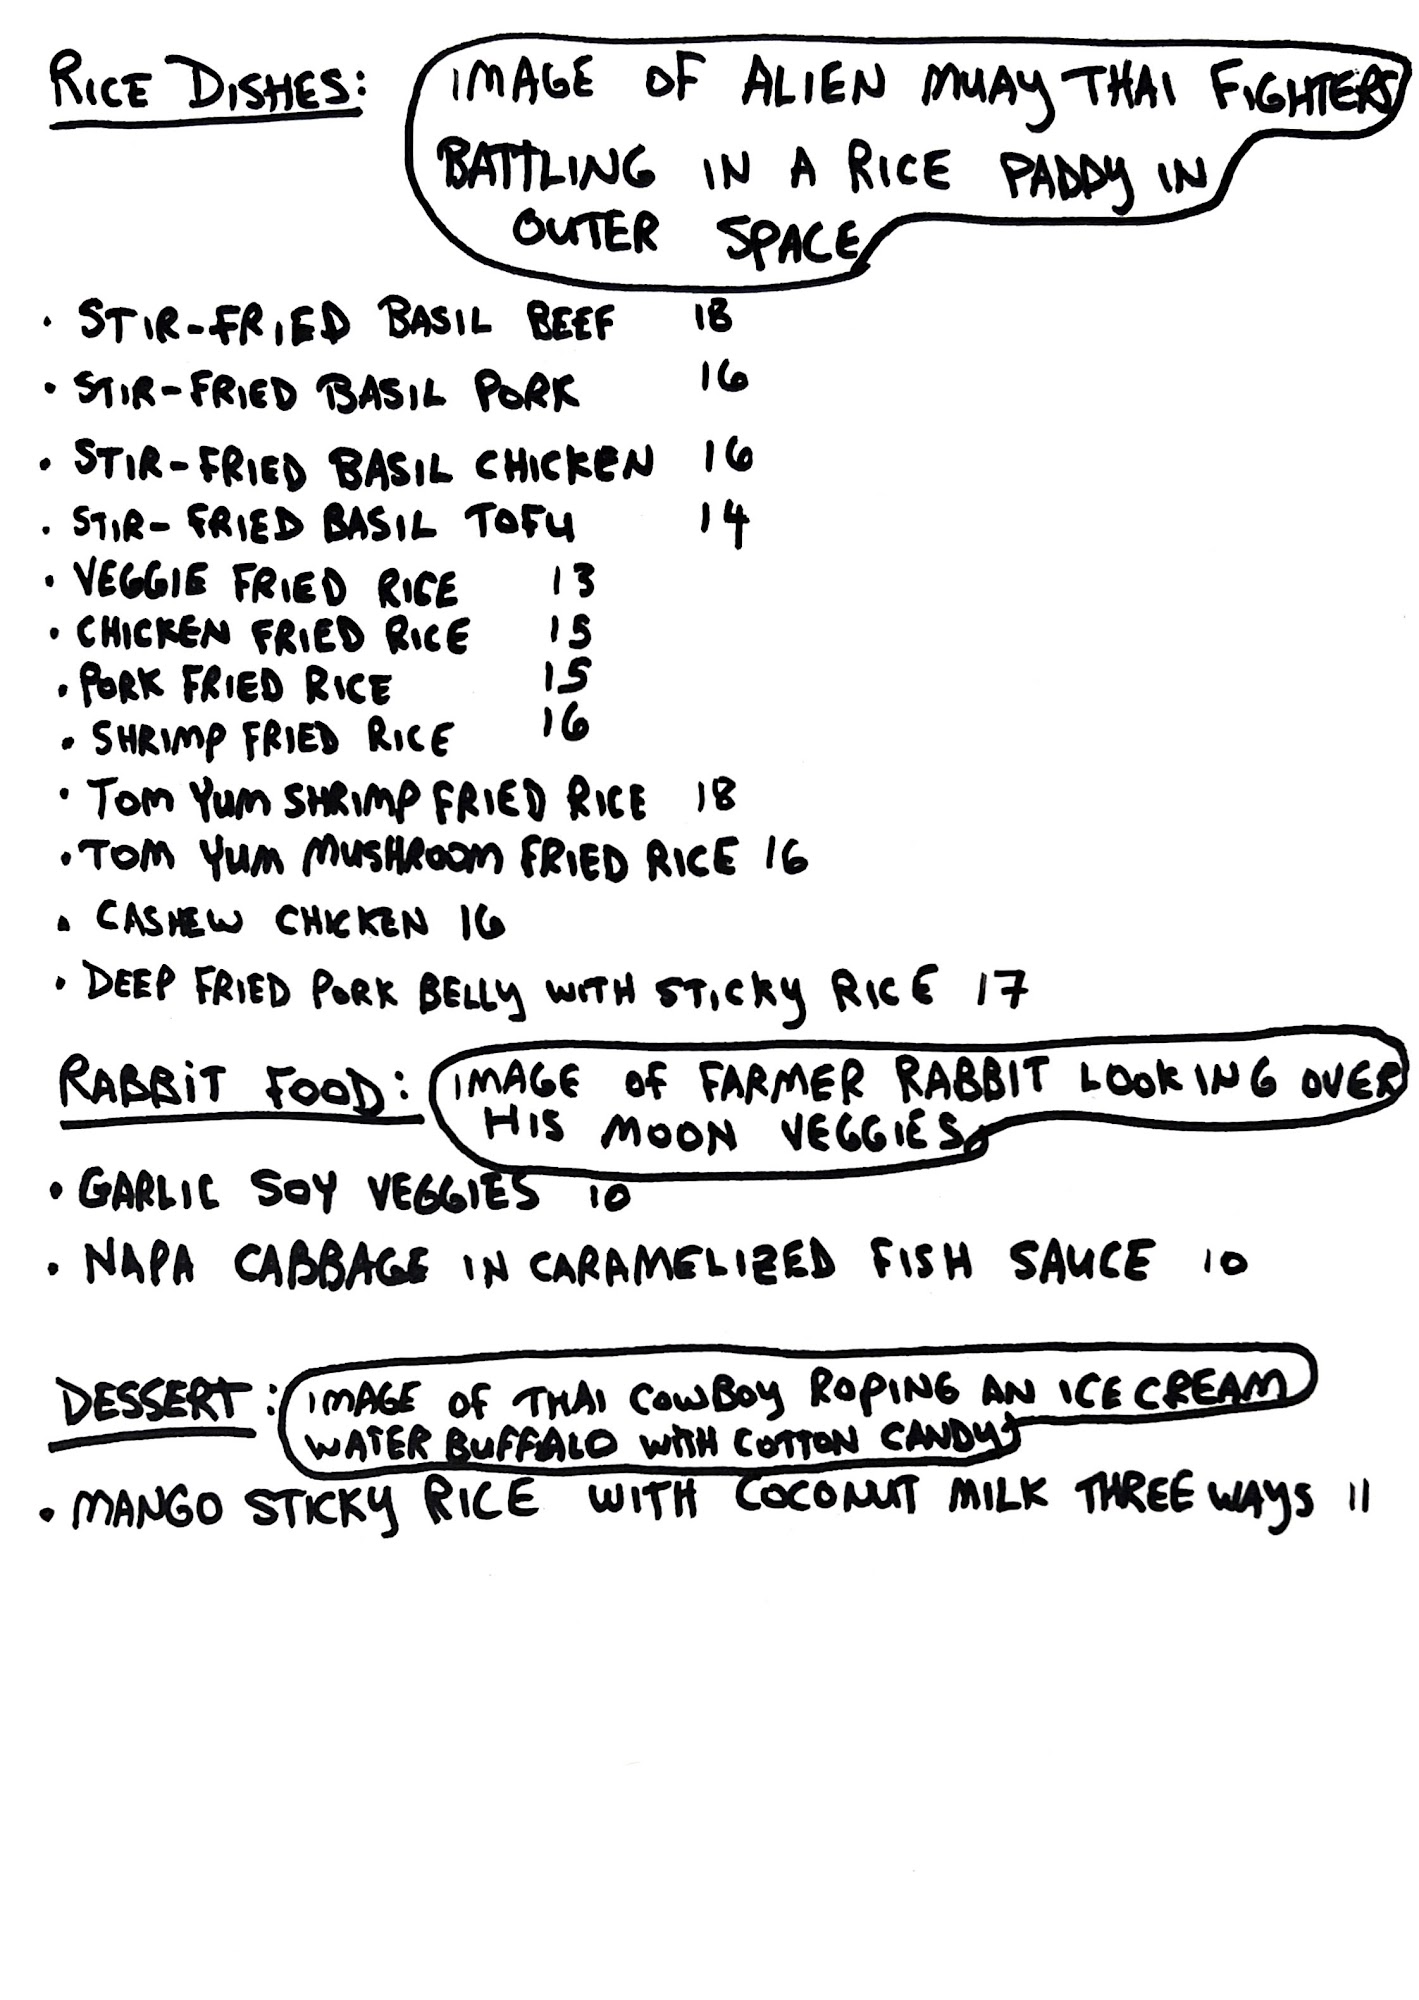 RICE DISHES:
IMAGE OF ALIEN MUAY THAI FIGHTERS
BATTLING IN A RICE PADDY IN
OUTER SPACE
• STIR-FRIED BASIL BEEF 18
• STIR-FRIED BASIL PORK 16
• STIR-FRIED BASIL CHICKEN 16
• STIR-FRIED BASIL TOFU 14
• VEGGIE FRIED RICE 13
• CHICKEN FRIED RICE 15
• PORK FRIED RICE 15
• SHRIMP FRIED RICE 16
• TOM YUM SHRIMP FRIED RICE 18
• TOM YUM MUSHROOM FRIED RICE 16
• CASHEW CHICKEN 16
• DEEP FRIED PORK BELLY WITH STICKY RICE 17
RABBIT FOOD: IMAGE OF FARMER RABBIT LOOKING OVER
HIS MOON VEGGIES
• GARLIC SOY VEGGIES 10
• NAPA CABBAGE IN CARAMELIZED FISH SAUCE 10
DESSERT: IMAGE OF THAI COWBOY ROPING AN ICE CREAM
WATER BUFFALO WITH COTTON CANDY
• MANGO STICKY RICE WITH COCONUT MILK THREE WAYS 11